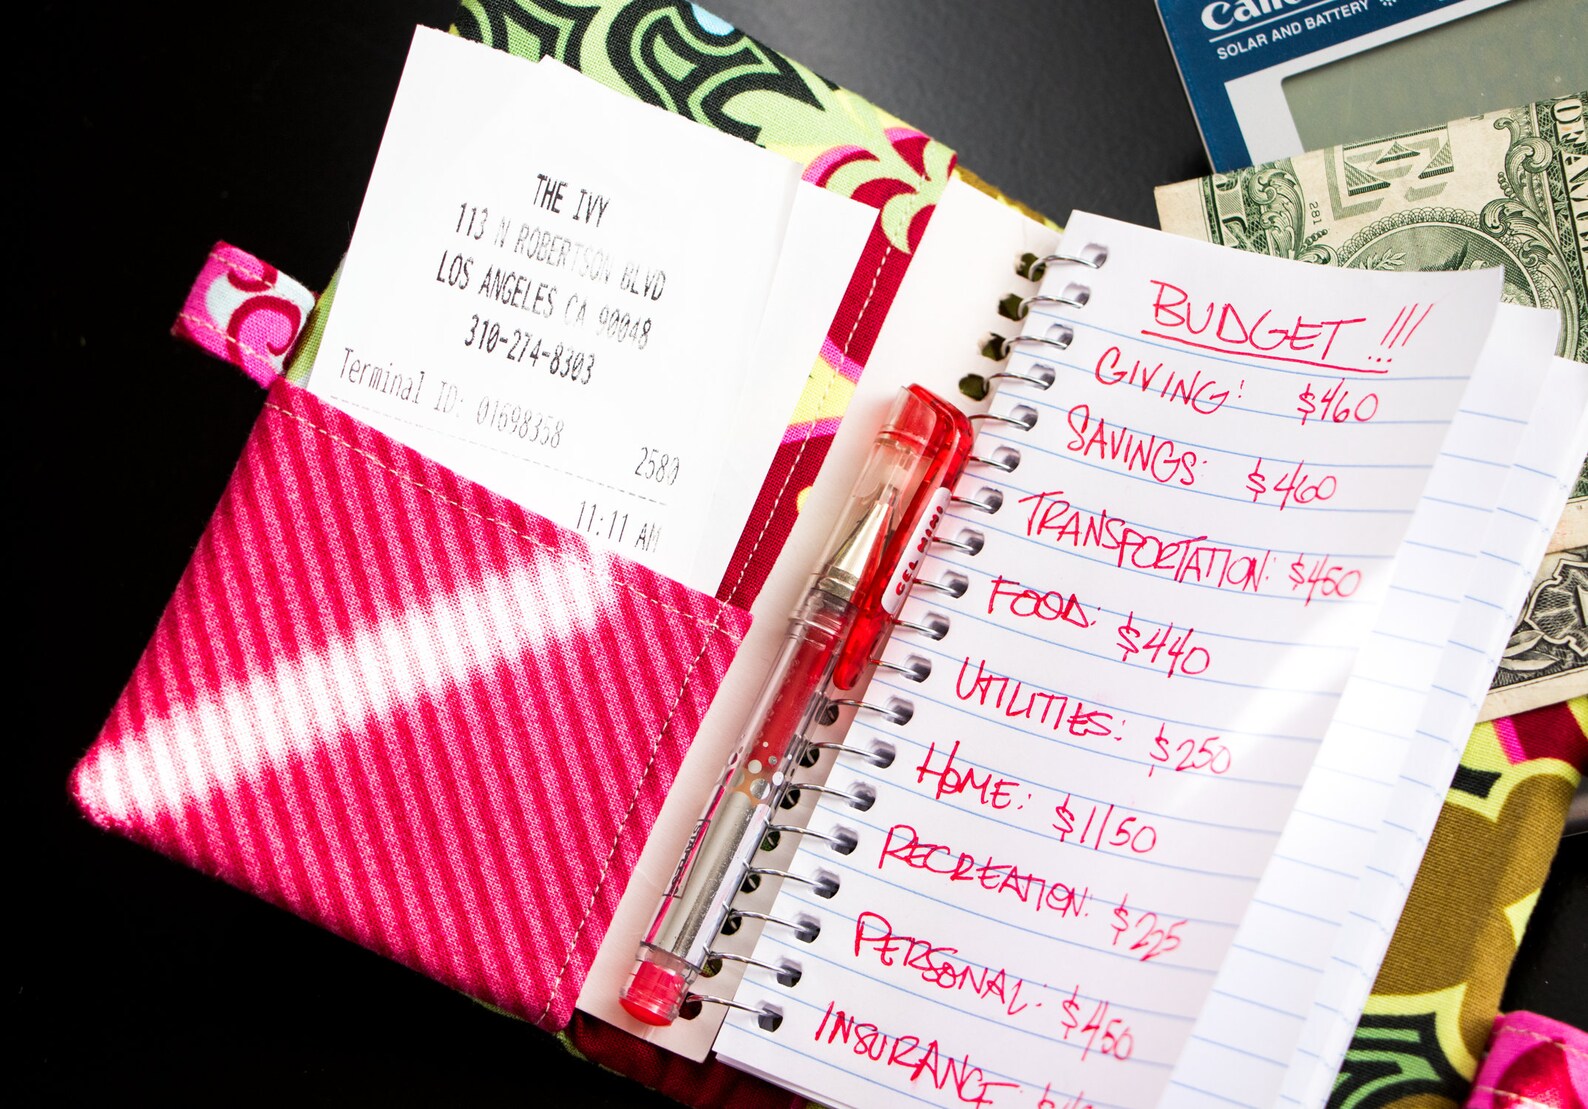 THE IVY
113 N ROBERTSON BLVD
LOS ANGELES CA 90048
310-274-8303
Terminal ID: 01698358
2580
11:11 AM
SOLAR AND BATTERY
281
GEL MINI
BUDGET!!!
GIVING: $460
SAVINGS: $460
TRANSPORTATION: $450
FOOD: $440
UTILITIES: $250
HOME: $1150
RECREATION: $225
PERSONAL: $450
INSURANCE